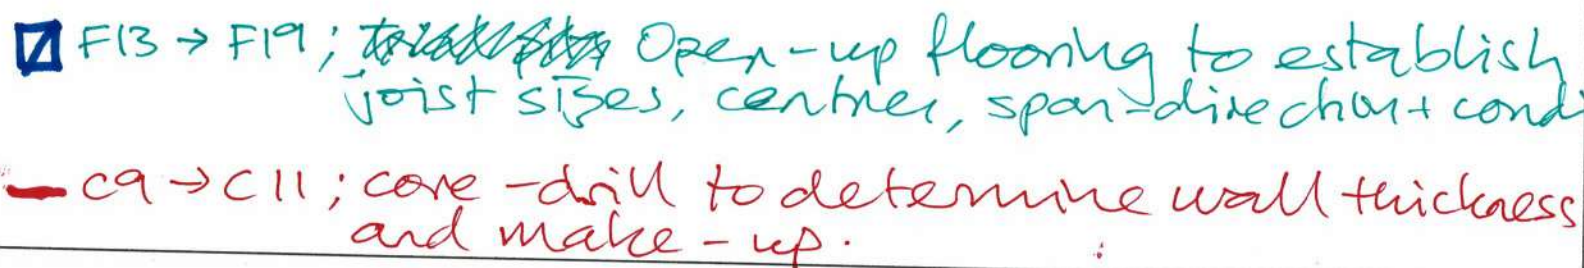 F13 → F19; Open-up flooring to establish
joist sizes, centres, span-direction + cond
C9 → C11; core-drill to determine wall thickness
and make-up.